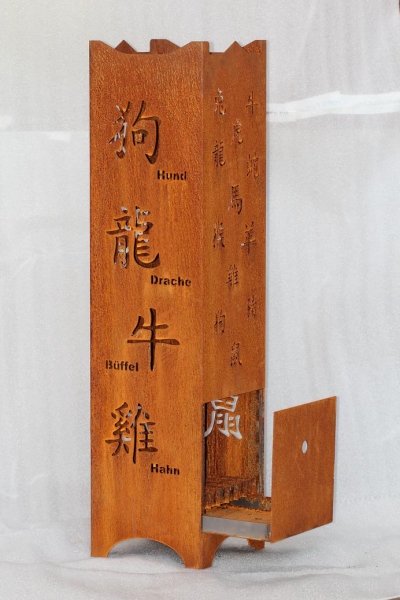 狗
Hund
龍
Drache
牛
Büffel
雞
Hahn
兔
牛
虎
龍
蛇
馬
羊
雞
狗
鼠
鼠